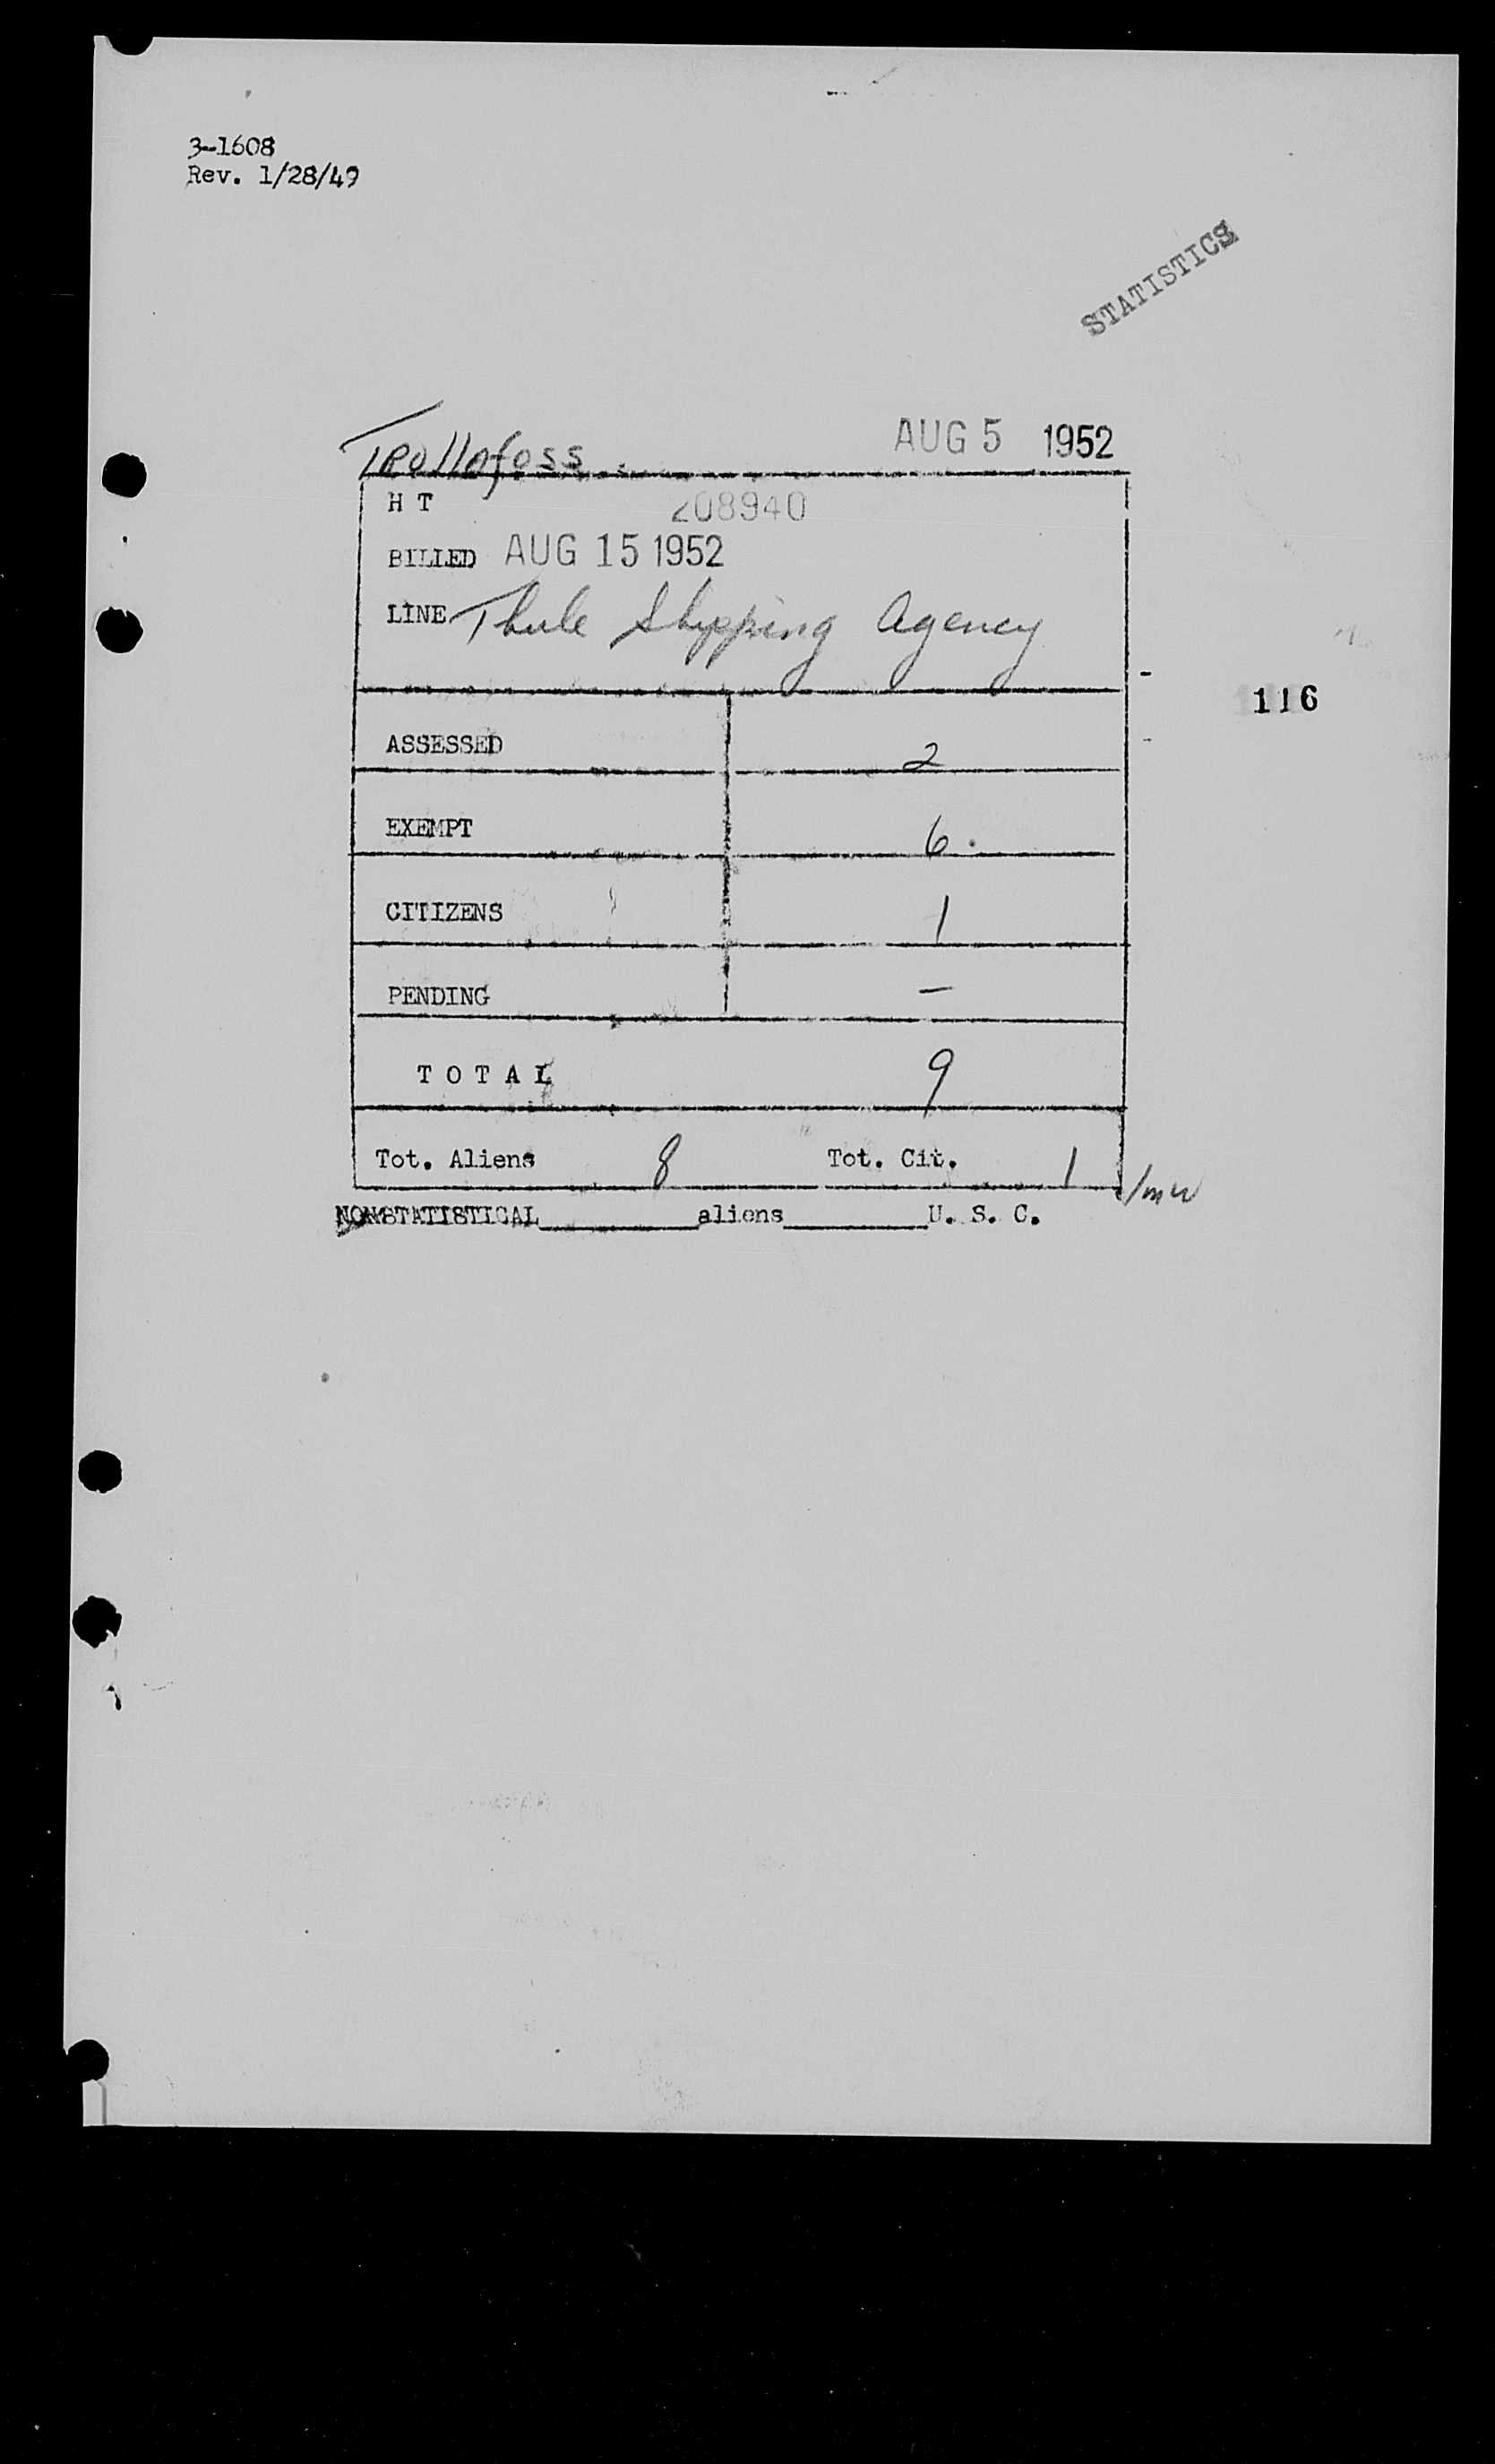 3-1608
Rev. 1/28/49
STATISTICS
Trollafoss AUG 5 1952
H T 208940
BILLED AUG 15 1952
LINE Thule Shipping Agency
116
ASSESSED 2
EXEMPT 6.
CITIZENS 1
PENDING —
TOTAL 9
Tot. Aliens 8 Tot. Cit. 1 /mw
NONSTATISTICAL____aliens____U. S. C.